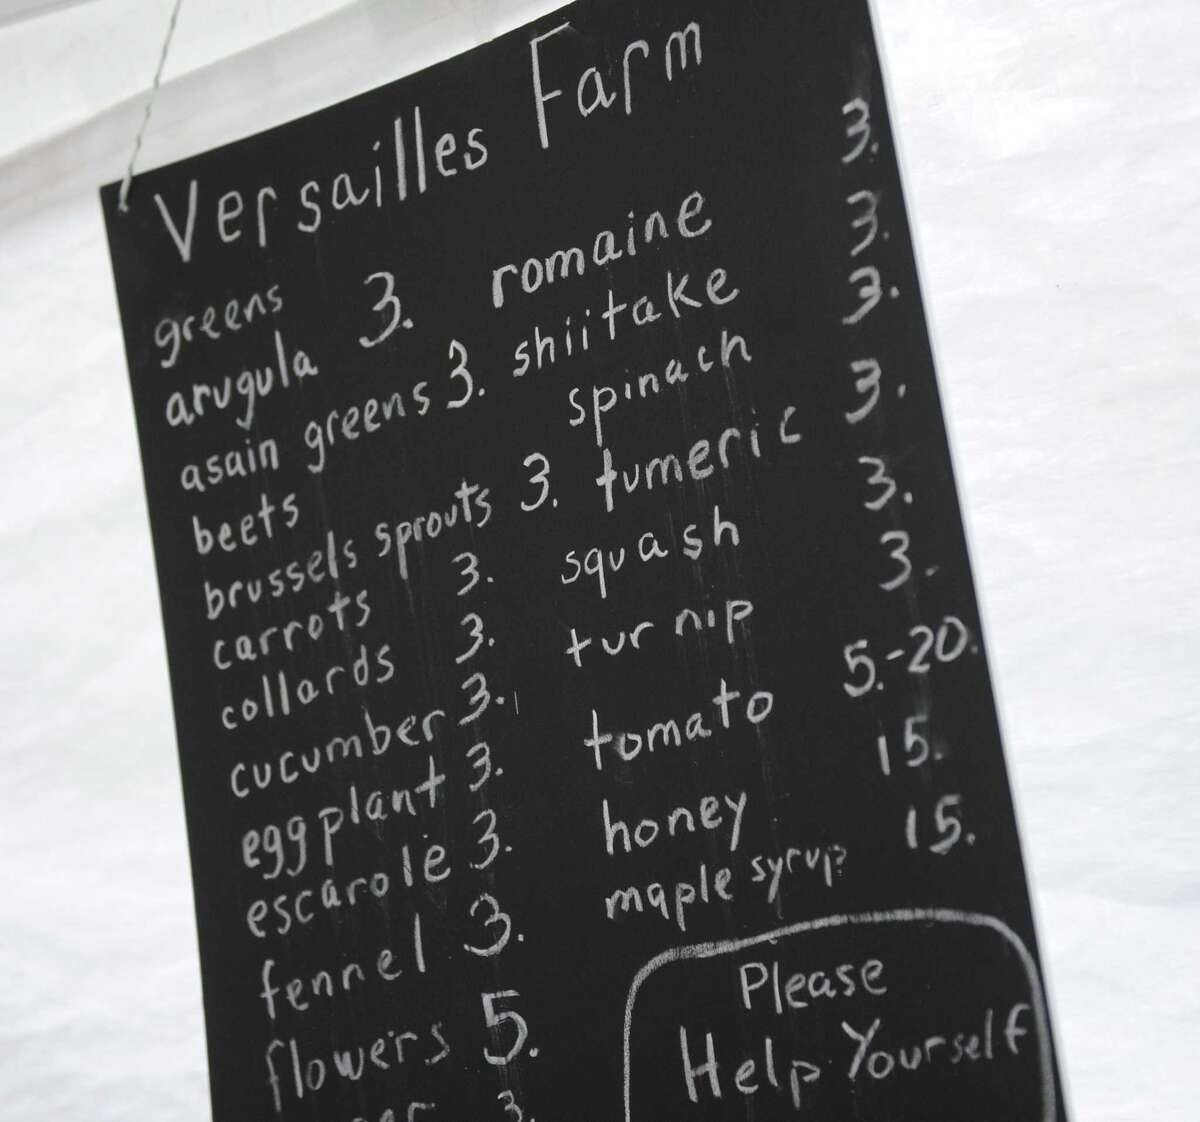 Versailles Farm
greens
arugula 3.
asain greens 3.
beets
brussels sprouts 3.
carrots 3.
collards 3.
cucumber 3.
eggplant 3.
escarole 3.
fennel 3.
flowers 5.
3.
romaine 3.
shiitake 3.
spinach 3.
tumeric 3.
squash 3.
turnip 3.
tomato 5.-20.
honey 15.
maple syrup 15.
Please
Help Yourself